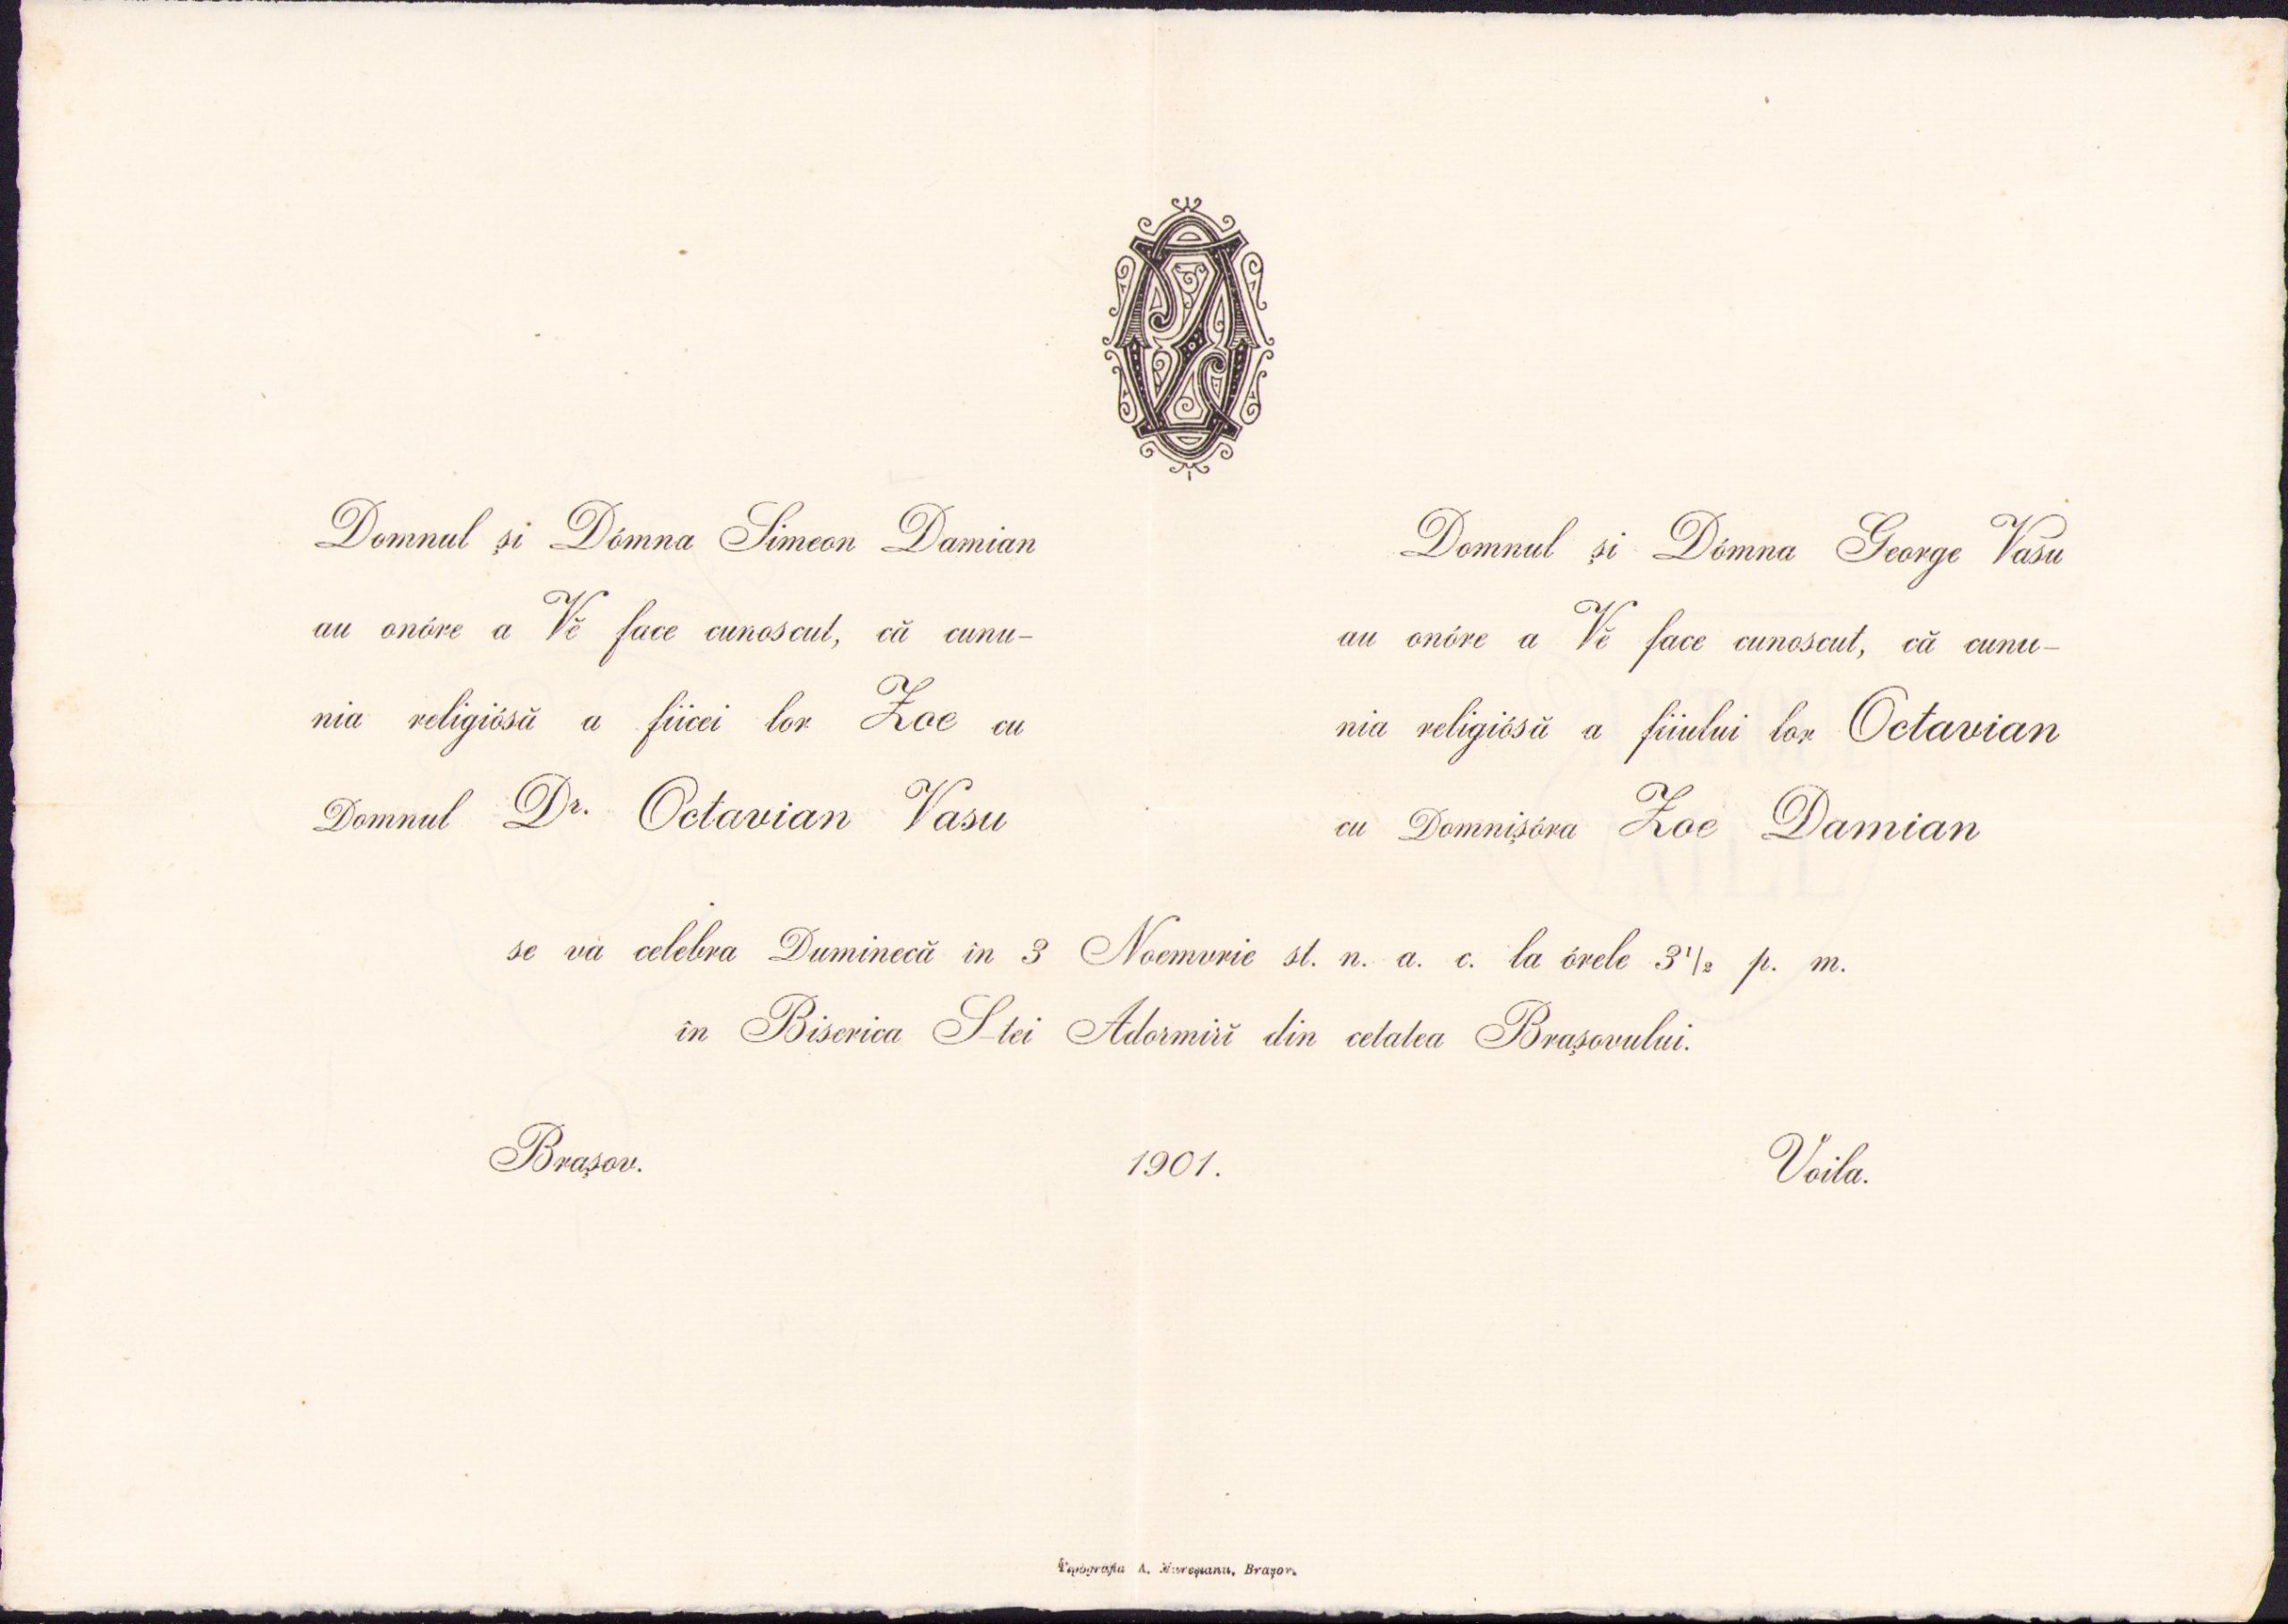 Domnul și Dómna Simeon Damian
au onóre a Vĕ face cunoscut, că cunu-
nia religiósă a fiicei lor Zoe cu
Domnul Dr. Octavian Vasu
Domnul și Dómna George Vasu
au onóre a Vĕ face cunoscut, că cunu-
nia religiósă a fiiului lor Octavian
cu Domnișóra Zoe Damian
se va celebra Duminecă în 3 Noemvrie st. n. a. c. la órele 3 1/2 p. m.
în Biserica S-tei Adormirĭ din cetatea Brașovului.
Brașov. 1901. Voila.
Tipografia A. Mureșianu, Brașov.